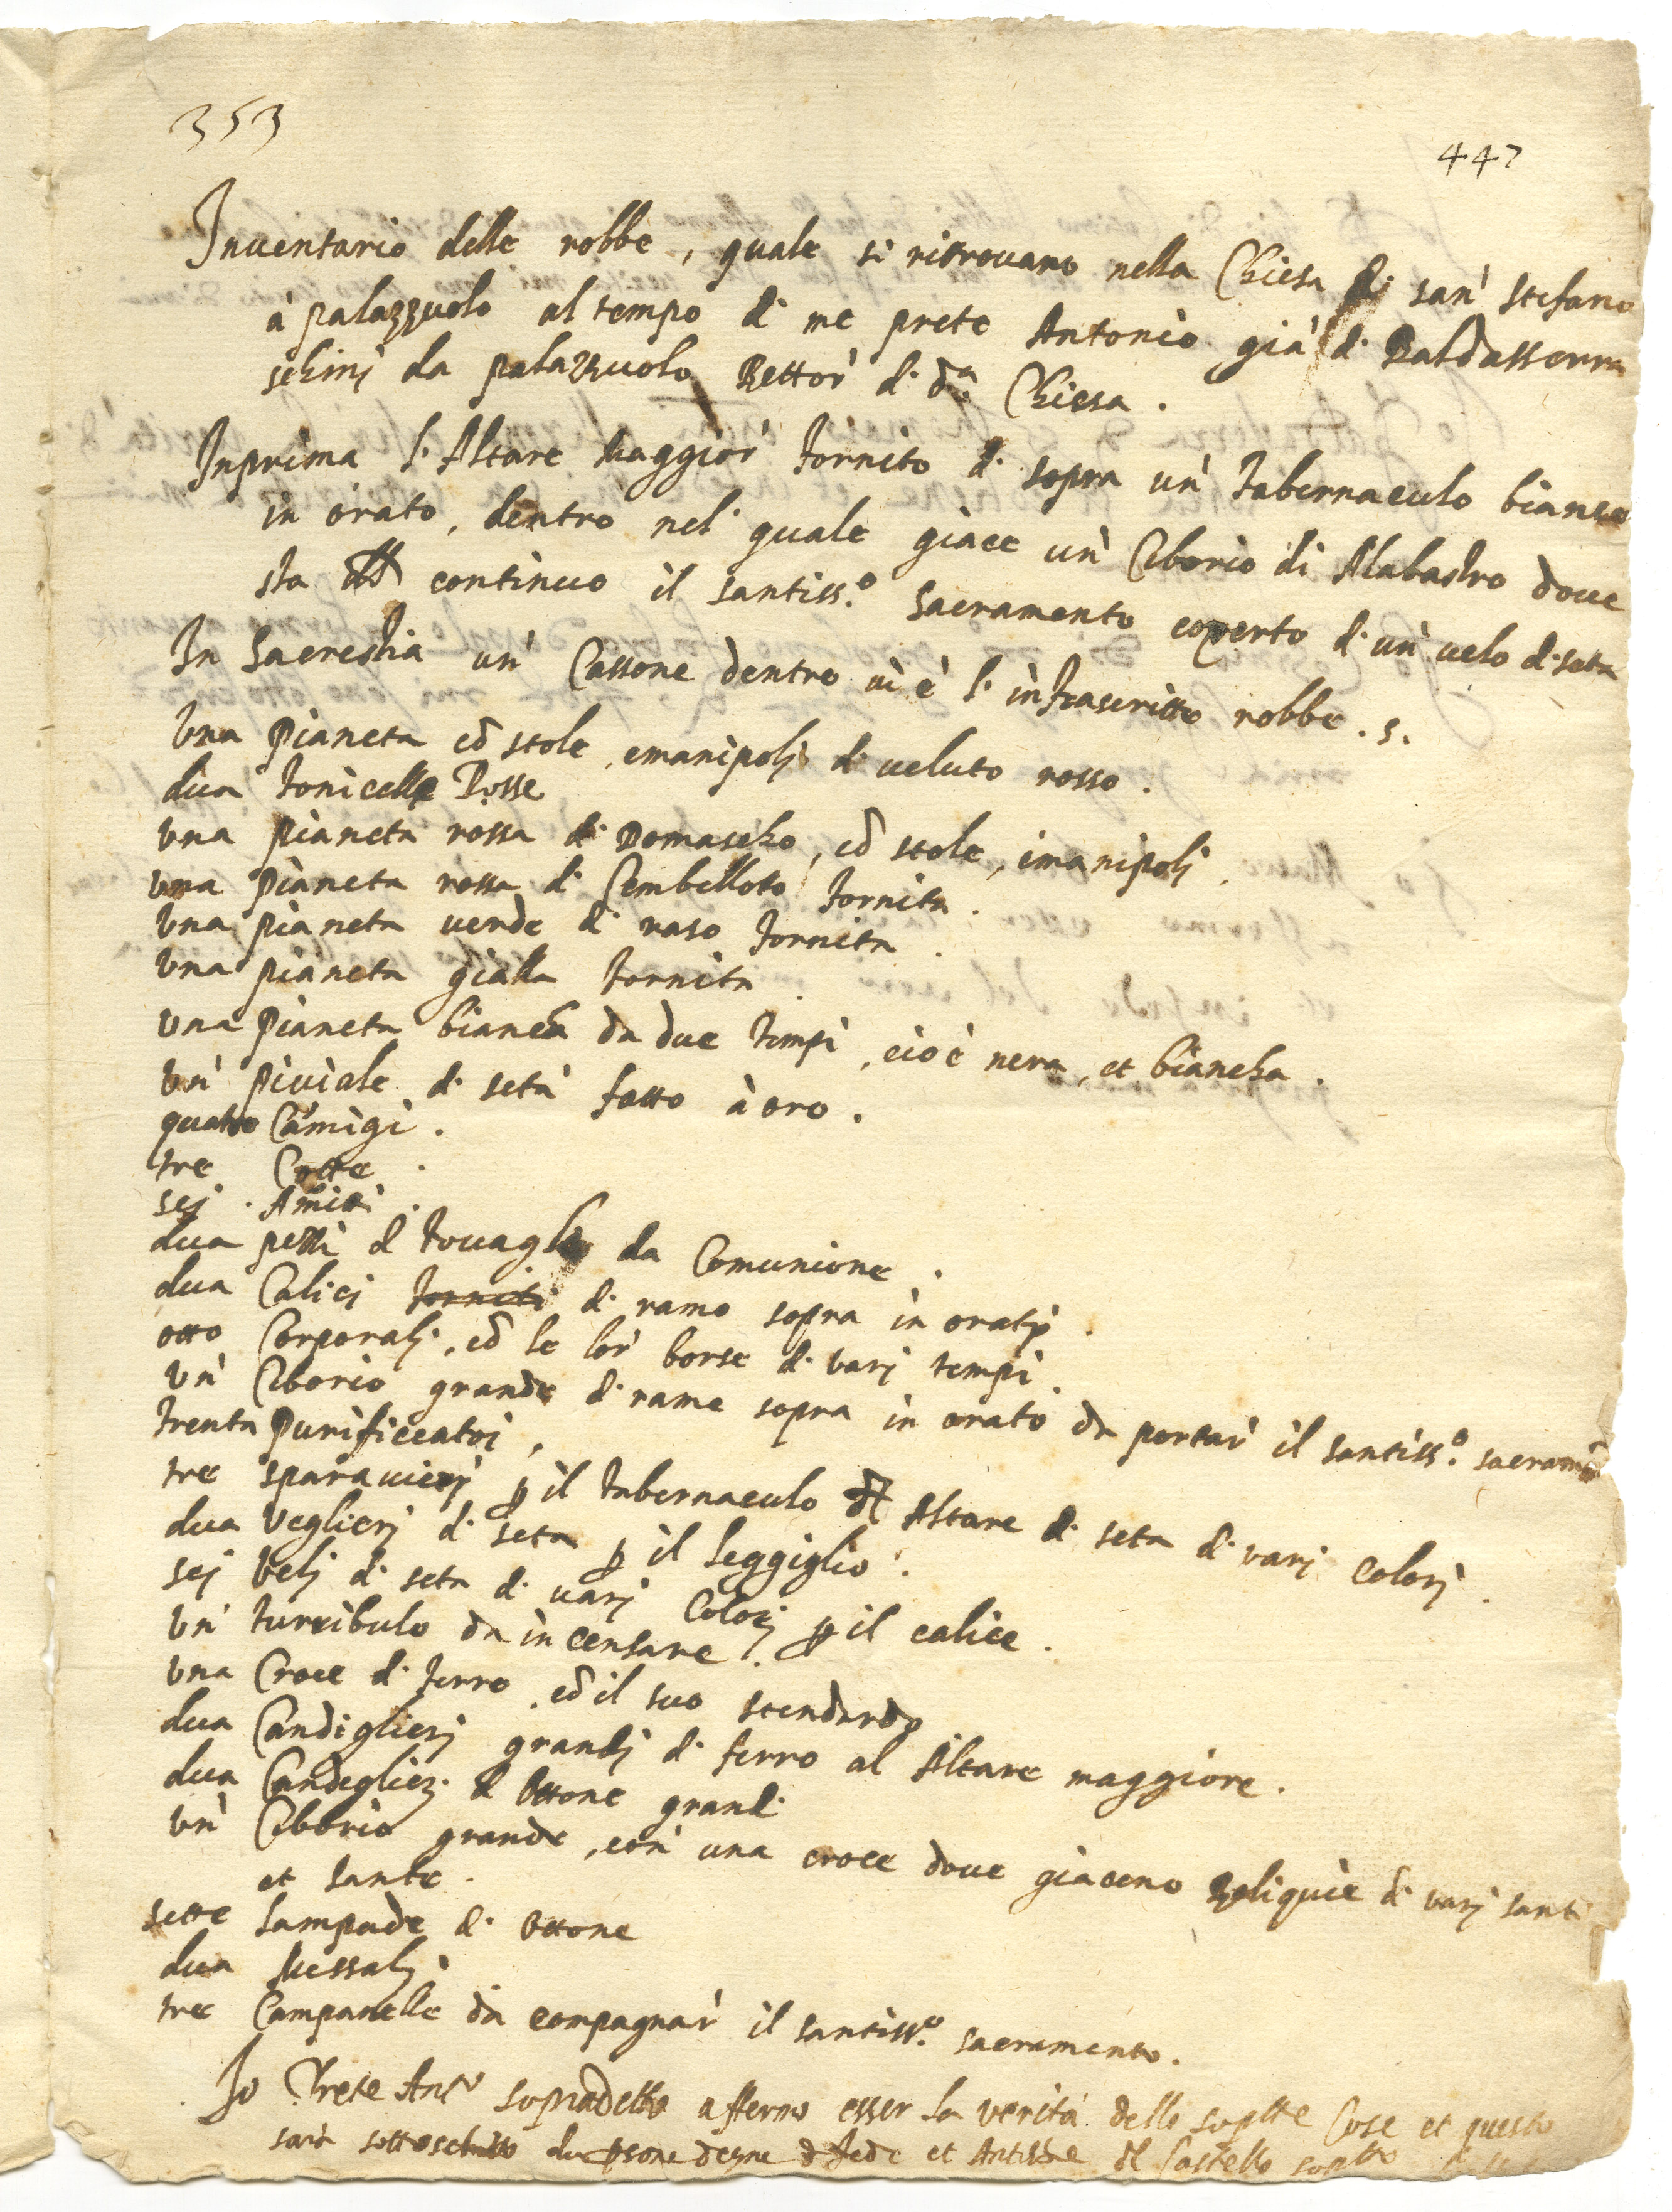 353
447
Inuentario delle robbe, quale si ritrouano nella Chiesa di san' Stefano
à palazzuolo al tempo di me prete Antonio già di Baldasserra
schinj da palazzuolo Rettor' di d.a Chiesa.
Inprima l'Altare Maggior' fornito di sopra un' Tabernaculo bianco
in orato, dentro nel' quale giace un' Ciborio di Alabastro doue
sta continuo il santiss.o sacramento coperto di un' uelo di seta
In Sacrestia un' Cassone dentro ui è l'infrascritte robbe. s.
Vna Pianeta cō stole, emanipolj di ueluto rosso.
dua Tonicelle Rosse
Vna pianeta rossa di Domascho, cō stole, imanipolj.
Vna pianeta rossa di Cembelloto fornita.
Vna pianeta uerde di raso fornita.
Vna pianeta gialla fornita
Vna Pianeta biancha da due tempi, cioè nera, et biancha.
Vn' piuiale di seta fatto à oro.
quatro Camigi.
tre Cotte.
sej. Amitti.
dua pezzi d touaglie da Comunione.
dua Calici forniti di ramo sopra in oratj.
otto Corporalj, cō le lor' borse di varj tempi.
Vn' Ciborio grande di rame sopra in orato da portar' il santiss.o sacramēto
trenta Purificcatoi,
tre sparauierj ꝑ il tabernaculo Altare di seta di varj Colorj.
dua Veglierj di seta ꝑ il Leggiglio.
sej Velj di seta di uarj Colorj ꝑ il calice.
Vn' turribulo da incensare.
Vna Croce di ferro, cō il suo stendardo
dua Candiglierj grandj di ferro al Altare maggiore.
dua Candeglierj d Ottone grandi
Vn' Ciborio grande, con' una croce doue giaceno Reliquie di varj santi
et sante.
sette Lampade di Ottone
dua Messalj
tre Campanelle da compagnar' il santiss.o sacramento.
Io Prete Ant.o sopradetto affermo esser la verità delle sop.tte Cose et questo
sarà sottoscritto da ꝑsone degne d fede et del Castello sop.tto